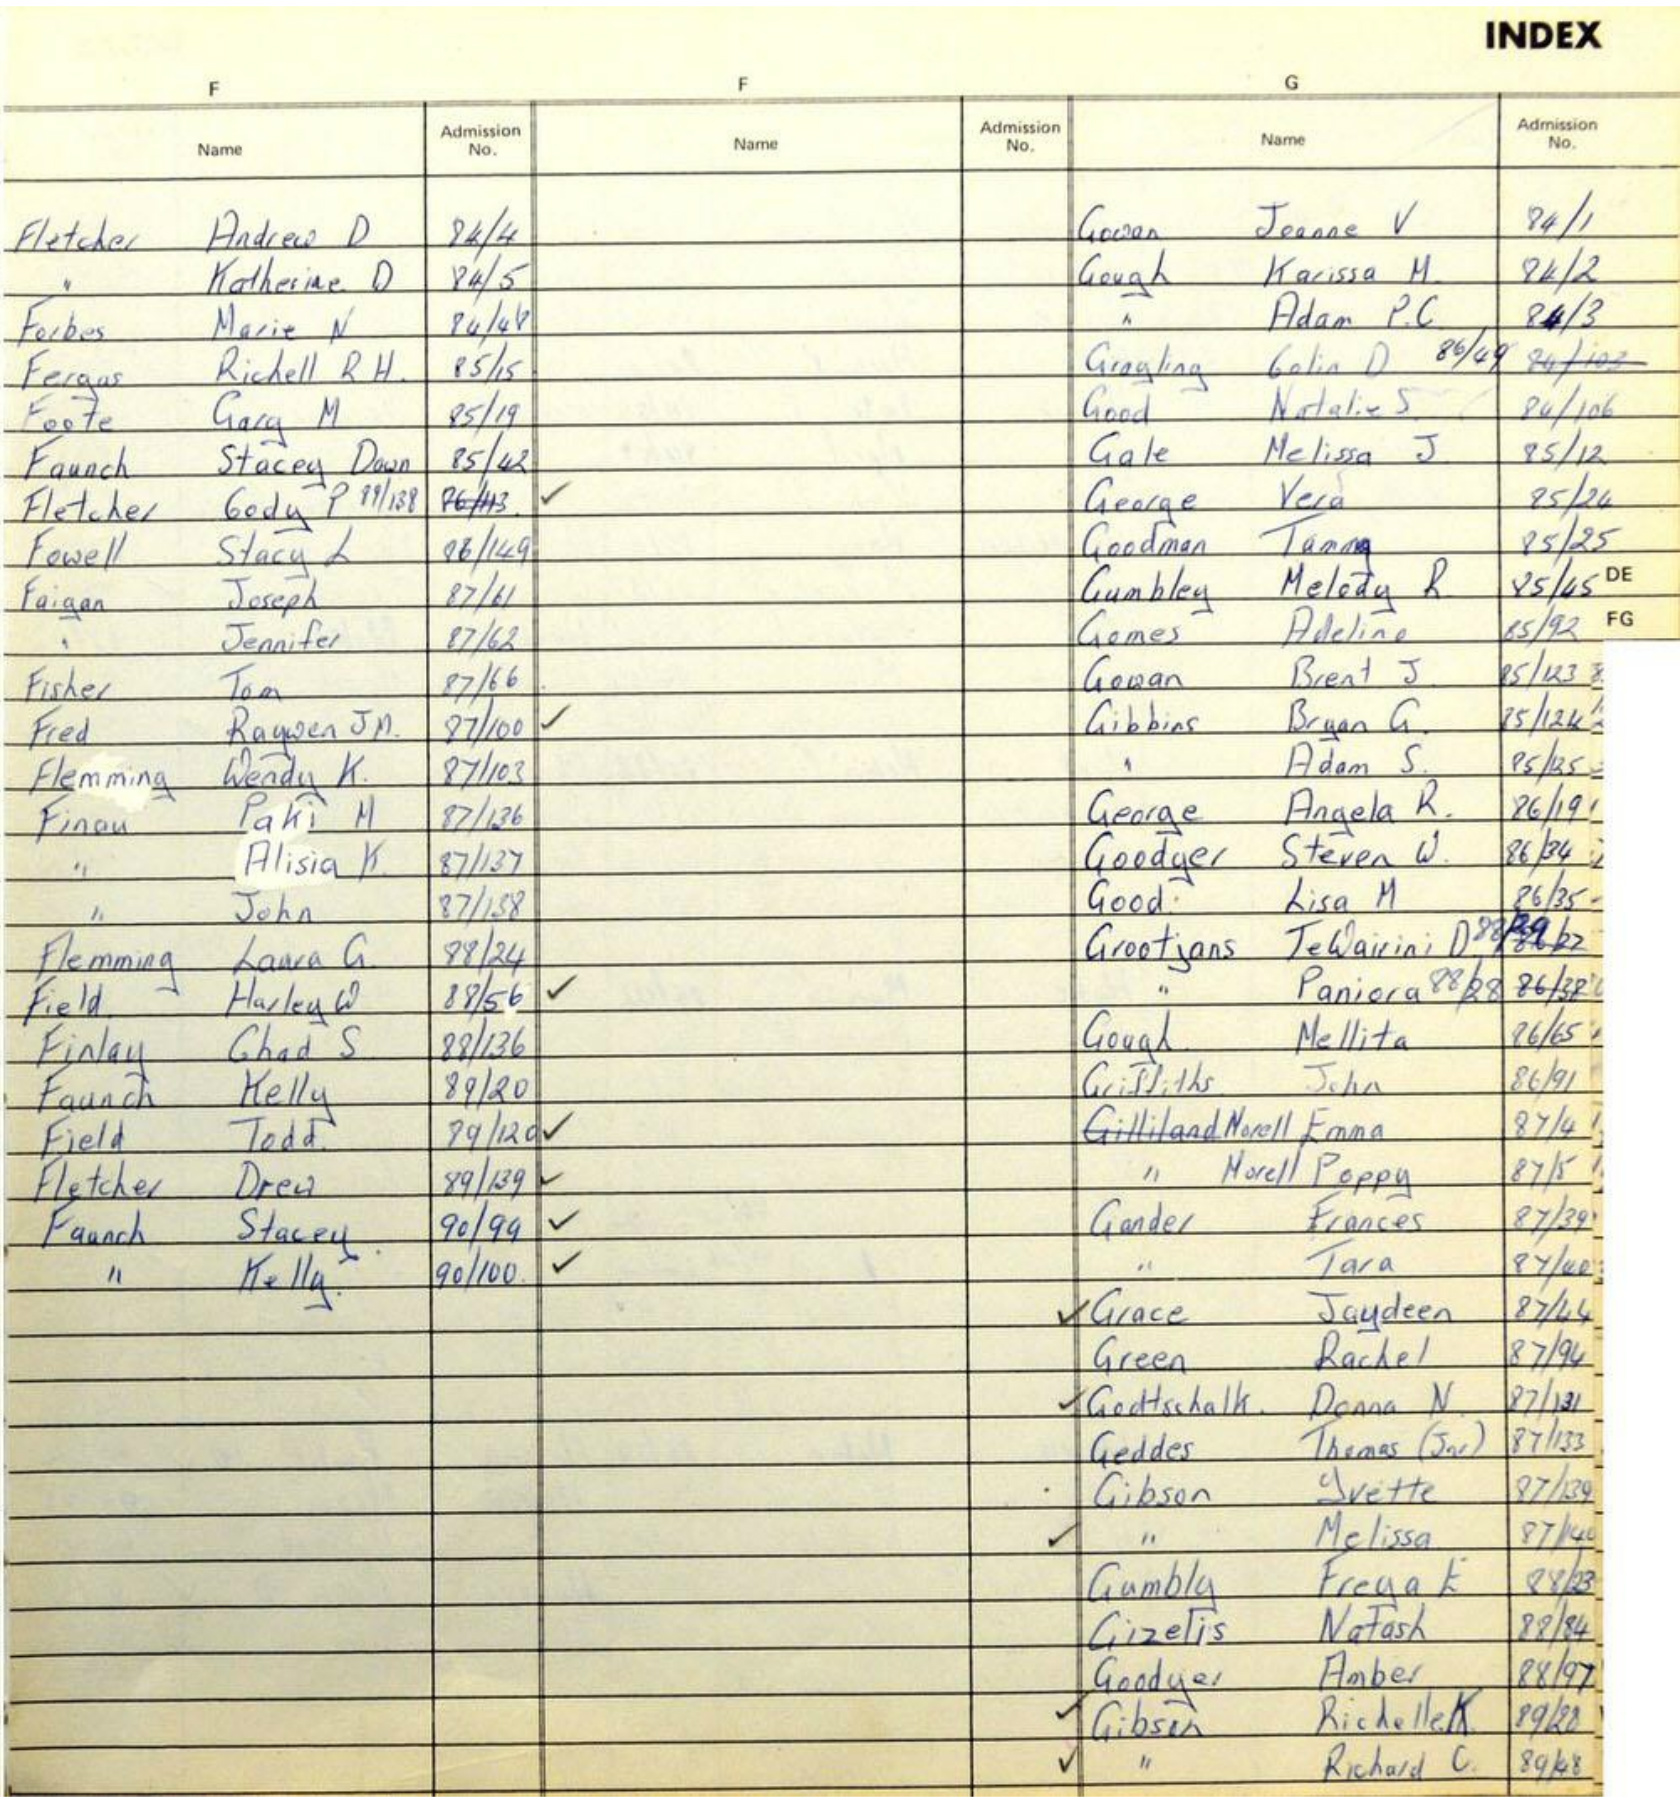 INDEX
F F G
Name Admission No. Name Admission No. Name Admission No.
Fletcher Andrew D 84/4
" Katherine D 84/5
Forbes Marie N 84/48
Fergus Richell R H. 85/15
Foote Gary M 85/19
Faunch Stacey Dawn 85/42
Fletcher Cody P 89/138 86/113
Fowell Stacy L 86/149
Faigan Joseph 87/61
" Jennifer 87/62
Fisher Tom 87/66
Fred Raywen J M. 87/100 ✓
Flemming Wendy K. 87/103
Finau Paki M 87/136
" Alisia K. 87/137
" John 87/138
Flemming Laura G. 88/24
Field Harley W 88/56 ✓
Finlay Chad S 88/136
Faunch Kelly 89/20
Field Todd. 89/120 ✓
Fletcher Drew 89/139 ✓
Faunch Stacey. 90/99 ✓
" Kelly. 90/100. ✓
Gowan Jeanne V 84/1
Gough Karissa M. 84/2
" Adam P.C. 84/3
Grayling Colin D 86/49 84/103
Good Natalie S. 84/106
Gale Melissa J 85/12
George Vera 85/24
Goodman Tammy 85/25
Gumbley Melody R 85/45 DE
Gomes Adeline 85/92 FG
Gowan Brent J. 85/123
Gibbins Bryan G. 85/124
" Adam S. 85/125
George Angela R. 86/19
Goodyer Steven W. 86/34
Good Lisa M 86/35
Grootjans TeWairini D 88/29
" Paniora 88/28 86/38
Gough Mellita 86/65
Griffiths John 86/91
Gilliland Morell Emma 87/4
" Morell Poppy 87/5
Gander Frances 87/39
" Tara 87/40
✓ Grace Jaydeen 87/44
Green Rachel 87/94
✓ Gottschalk. Donna N. 87/131
Geddes Thomas (Jnr) 87/133
Gibson Yvette 87/139
✓ " Melissa 87/140
Gumbly Freya E 88/23
Gizelis Natash 88/84
Goodyer Amber 88/97
✓ Gibson Richelle K. 89/28
✓ " Richard C. 89/48